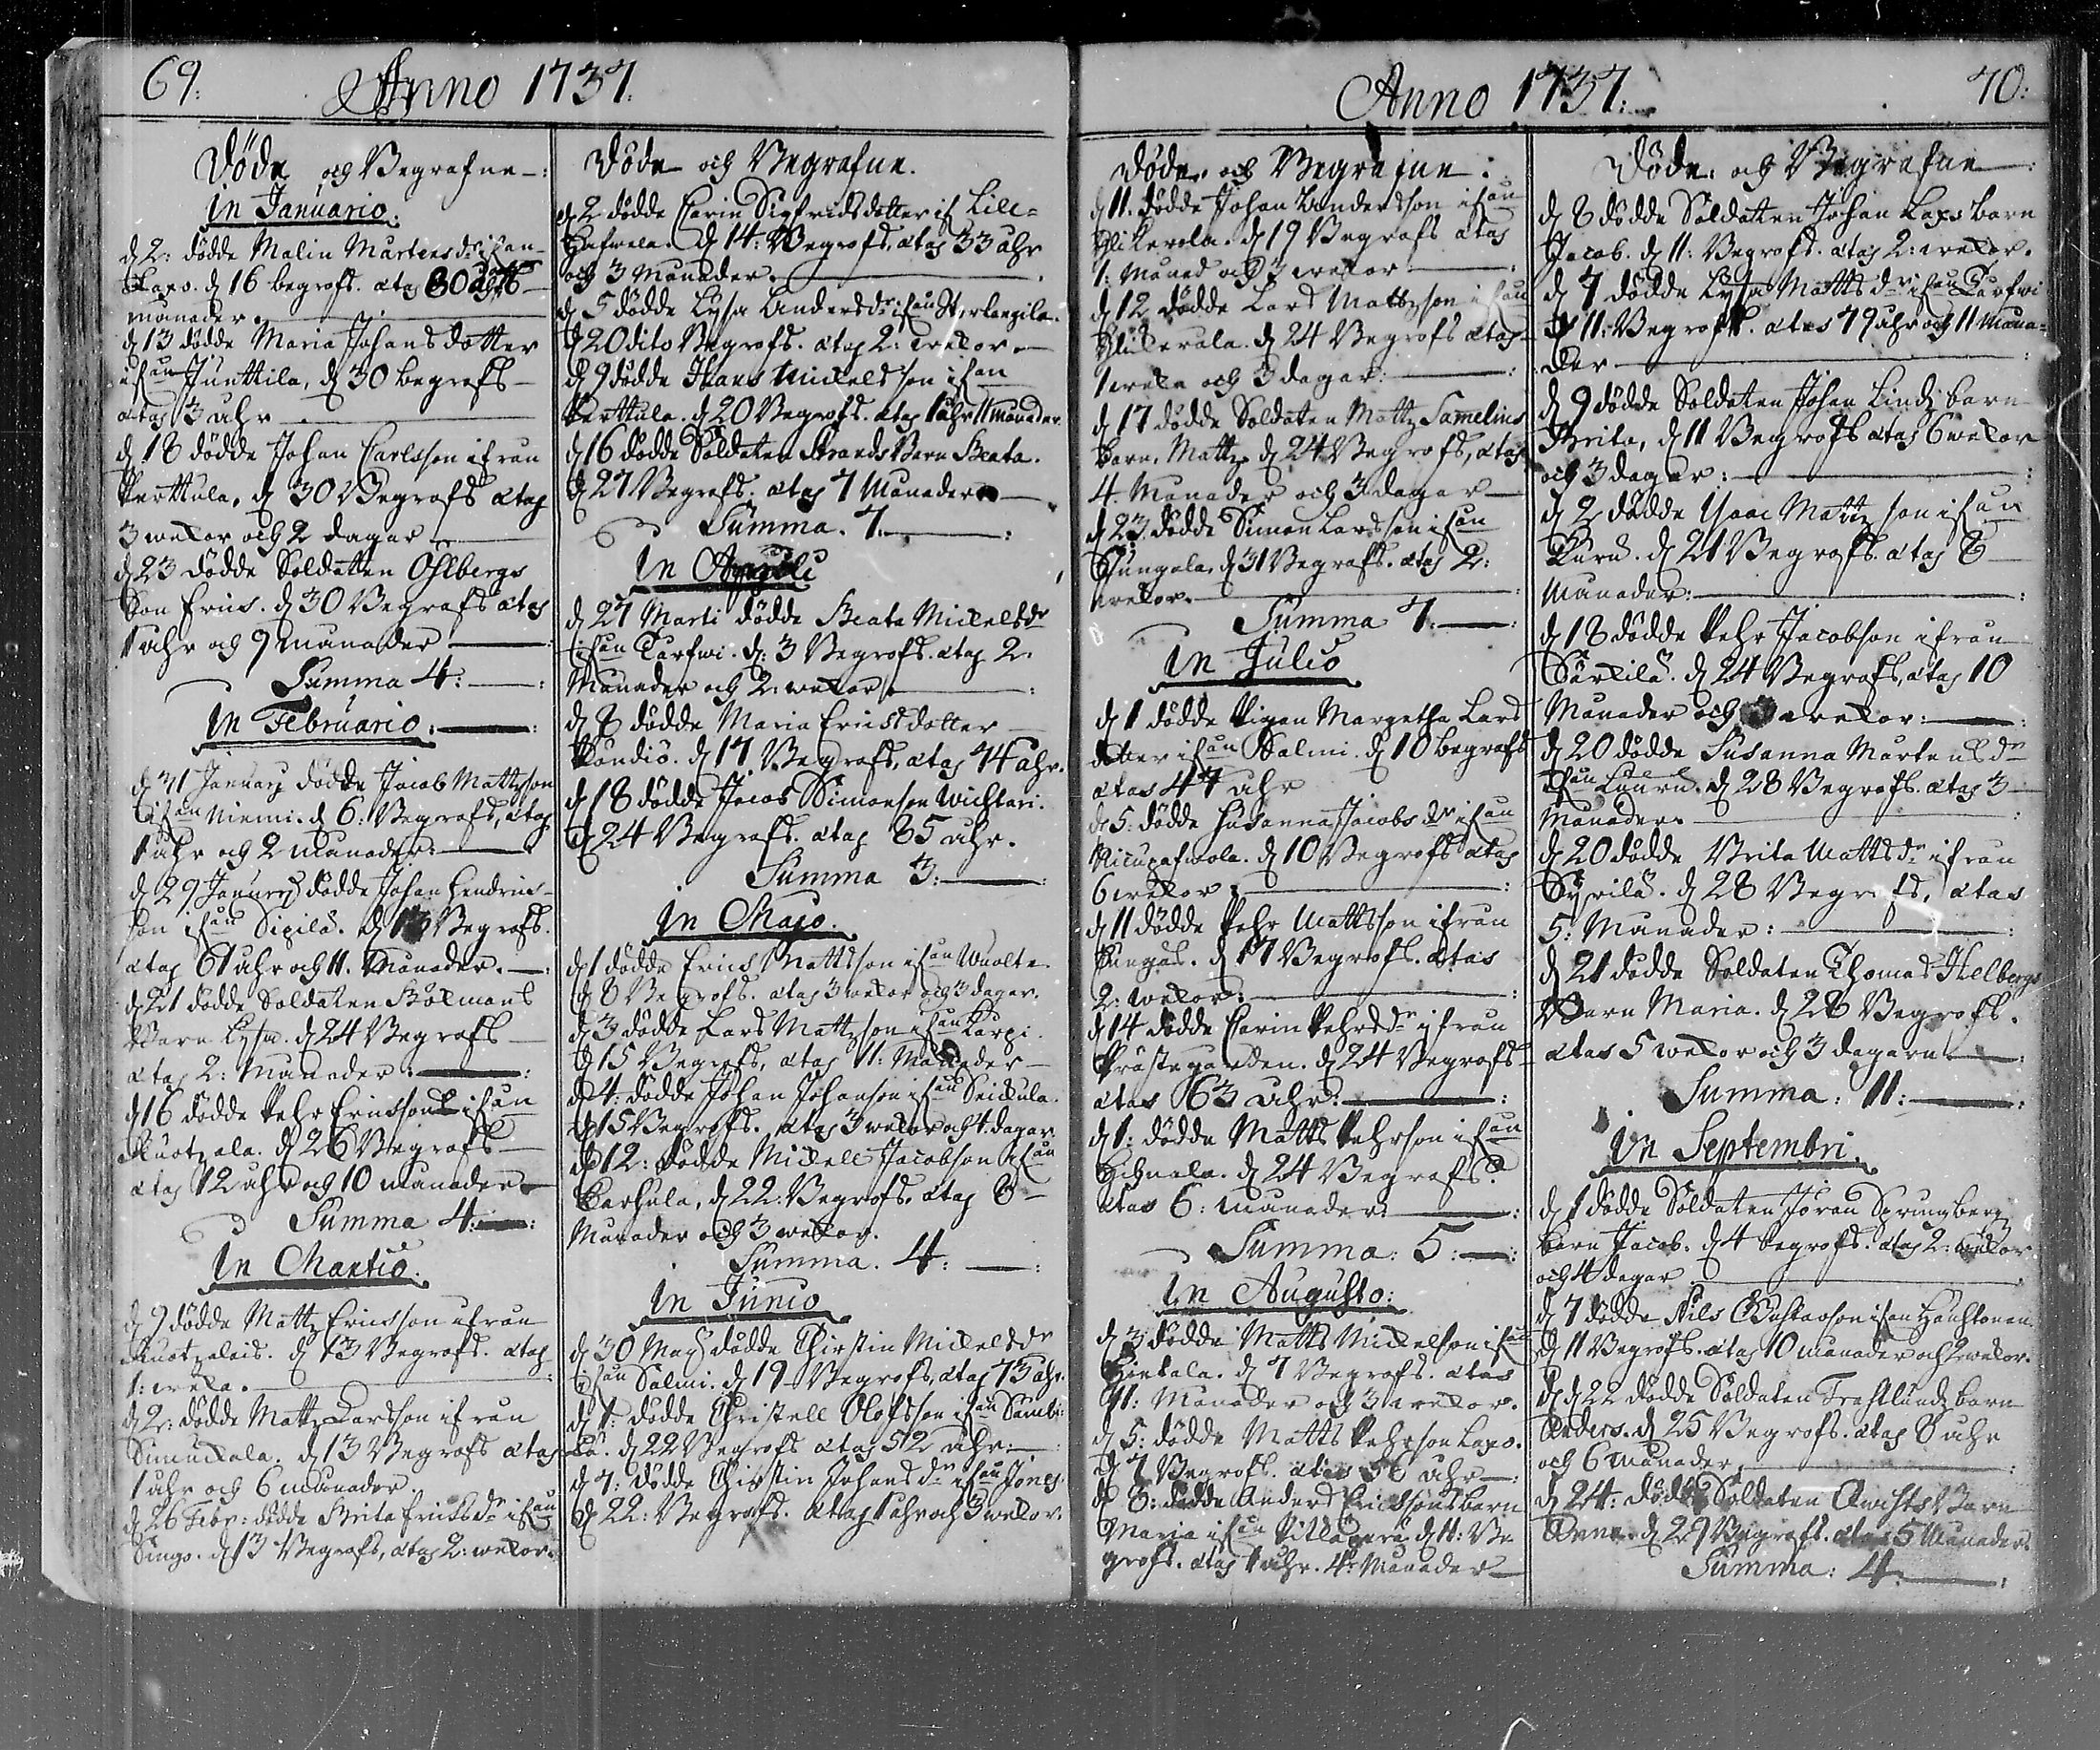 69:
Anno 1737.
Döde och Begrafne:
in Januario.
d 2: dödde Malin Mårtens dr ifrån
Lapo. d 16 begrofs. ätas 80 åhr 6
månader.
d 13 dödde Maria Johans dotter
ifrån Junttila, d 30 begrofs
ätas 3 åhr
d 18 dödde Johan Carlsson ifrån
Perttula, d 30 Begrofs ätas
3 wekor och 2 dagar
d 23 dödde Soldatten Öhlbergs
Son Erics. d 30 Begrofs ätas
1 åhr och 9 månader
Summa 4:
in Februario.
d 31 January dödde Jacob Mattzson
ifrån Niemi. d 6: Begrofs, ätas
1 åhr och 2 månader:
d 29 January dödde Johan Hendrics-
son ifrån Sipilä. d 13 Begrofs.
ätas 61 åhr och 11. Månader.
d 21 dödde Soldaten Bökmans
Barn Lysa. d 24 Begrofs
ätas 2: Månader:
d 16 dödde Pehr Ericsson ifrån
Ruotzala. d 26 Begrofs
ätas 12 åhr och 10 månader
Summa 4:
in Martio.
d 9 dödde Mattz Ericsson ifrån
Ruotzalais. d 13 Begrofs. ätas
1: weka.
d 2: dödde Mattz Larsson ifrån
Simuckala. d 13 Begrofs ätas
1 åhr och 6 månader.
d 26 Febr: dödde Brita Erics dr ifrån
Singo. d 13 Begrofs, ätas 2: wekor.
Döde och Begrafne.
d 2 dödde Carin Sigfridsdotter if Lill-
Hafwela. d 14: Begrofs. ätas 33 åhr
och 3 Månader.
d 5 dödde Lysa Anders dr ifrån
d 20 dito Begrofs. ätas 2: wekor
d 9 dödde Hans Mickelsson ifrån
Perttula. d 20 Begrofs. ätas 1 åhr 11 månader.
d 16 dödde Soldaten Strands Barn Beata.
d 27 Begrofs. ätas 7 Månader
Summa. 7.
in Aprili
d 27 Marti dödde Beata Mickelsdr
ifrån Carfwi. d: 3 Begrofs. ätas 2.
Månader och 2: wekor
d 8 dödde Maria Ericsdotter
Kandis. d 17 Begrofs, ätas 74 åhr.
d 18 dödde Jacob Simonson Wichtari.
d 24 Begrofs. ätas 85 åhr.
Summa 3:
in Majo.
d 1 dödde Erics Mattsson ifrån Wuolte
d 8 Begrofs. ätas 3 wekor och 3 dagar.
d 3 dödde Lars Mattzson ifrån Karpi
d 15 Begrofs, ätas 11: Månader
d 4: dödde Johan Johanson ifrån Seickula.
d 15 Begrofs. ätas 3 wekor och 4 dagar
d 12: dödde Mickell Jacobson ifrån
Carhula, d 22: Begrofs. ätas 8
Månader och 3 wekor.
Summa. 4:
in Junio
d 30 Maj dödde Christin Mickelsdr
ifrån Salmi. d 19 Begrofs, ätas 73 åhr.
d 1: dödde Christell Olofsson ifrån Sambi-
la. d 22 Begrofs ätas 52 åhr
d 7: dödde Christin Johans dr ifrån Jones
d 22: Begrofs. ätas 1 åhr och 3 wekor.
Anno 1737.
70:
Döde och Begrafne:
d 11. dödde Johan Andersson ifrån
Hickerola. d 19 Begrofs ätas
1: Månad och 3 wekor
d 12 dödde Lars Mattzson ifrån
Hickerala. d 24 Begrofs ätas
1 weka och 3 dagar:
d 17 dödde Soldaten Mattz Samelius
barn. Mattz d 24 Begrofs, ätas
4. Månader och 3 dagar
d 23 dödde Simon Larsson ifrån
Hungala. d 31 Begrofs. ätas 2:
wekor.
Summa 7:
in Julio
d 1 dödde Pigan Margetha Lars
dotter ifrån Salmi. d 10 begrofs
ätas 47 åhr
d 5: dödde Susanna Jacobs dr ifrån
d 10 Begrofs ätas
6 wekor:
d 11 dödde Pehr Mattsson ifrån
Pungas. d 17 Begrofs. ätas
2: wekor.
d 14 dödde Carin Pehrsdr ifrån
Prästegården. d 24 Begrofs
ätas 63 åhr:
d 1: dödde Matts Pehrson ifrån
Hihnala. d 24 Begrofs.
ätas 6: månader:
Summa: 5:
in Augusto:
d 3 dödde Matts Mickelson ifrån
Hintala. d 7 Begrofs. ätas
11: Månader och 3 wekor.
d 5: dödde Matts Pehrson Lapo.
d 7 Begrofs. ätas 56 åhr
d 8: dödde Anders Erichsons barn
Maria ifrån d 11: Be-
grofs. ätas 1 åhr. 4: Månader
Döde och Begrafne
d 8 dödde Soldatten Johan Laxs barn
Jacob. d 11: Begrofs. ätas 2: wekor.
d 7 dödde Lysa Matts dr ifrån Carfwi
d 11: Begrofs. ätas 79 åhr och 11 Måna-
der
d 9 dödde Soldaten Johan Lindz barn
Brita, d 11 Begrofs ätas 6 wekor
och 3 dagar:
d 2 dödde Isaac Mattzson ifrån
Kurd. d 21 Begrofs. ätas 8
Månader:
d 18 dödde Pehr Jacobson ifrån
Särkilä. d 24 Begrofs, ätas 10
Månader och 3 wekor:
d 20 dödde Susanna Mårtens dr
ifrån Laura. d 28 Begrofs. ätas 3
Månader.
d 20 dödde Brita Matts dr ifrån
Syrilä. d 28 Begrofs, ätas
5: Månader:
d 21 dödde Soldaten Thomas Helbergs
Barn Maria. d 28 Begrofs.
ätas 5 wekor och 3 dagarn
Summa: 11:
in Septembri.
d 1 dödde Soldaten Jöran Sprungberg
barn Jacob. d 4 begrofs. ätas 2: wekor
och 4 dagar
d 7 dödde Nils Gustavson ifrån Hanhtonen.
d 11 Begrofs. ätas 10 månader och 2 wekor.
d 22 dödde Soldaten Frostlundz barn
Anders. d 25 Begrofs. ätas 8 åhr
och 6 Månader
d 24: dödde Soldaten Qwists Barn
Anna. d 29 Begrofs. ätas 5 Månader
Summa: 4: